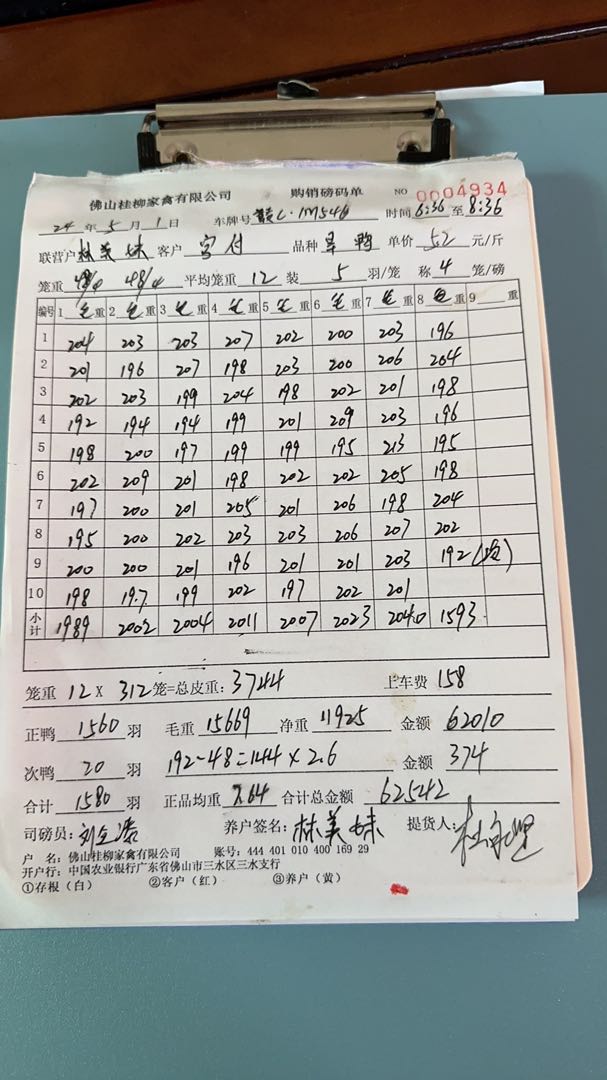 佛山桂柳家禽有限公司 购销磅码单 NO 0004934
24年5月1日 车牌号 赣C·1M546 时间 6:36 至 8:36
联营户 林美妹 客户 品种 鸭 单价 5.2 元/斤
笼重 48/4 48/4 平均笼重 12 装 5 羽/笼 称 4 笼/磅
编号 1 毛重 2 毛重 3 毛重 4 毛重 5 毛重 6 毛重 7 毛重 8 毛重 9 重
1 204 203 203 207 202 200 203 196
2 201 196 207 198 203 200 206 204
3 202 203 199 204 198 202 201 198
4 192 194 194 199 201 209 203 196
5 198 200 197 199 199 195 213 195
6 202 209 201 198 202 202 205 198
7 197 200 201 205 201 206 198 204
8 195 200 202 203 203 206 207 202
9 200 200 201 196 201 201 203 192 (次)
10 198 197 199 202 197 202 201
小计 1989 2002 2004 2011 2007 2023 2040 1593
笼重 12 X 312 笼=总皮重: 3744 上车费 158
正鸭 1560 羽 毛重 15669 净重 11925 金额 62010
次鸭 20 羽 192-48=144×2.6 金额 374
合计 1580 羽 正品均重 7.64 合计总金额 62542
司磅员: 养户签名: 林美妹 提货人:
户 名: 佛山桂柳家禽有限公司 账号: 444 401 010 400 169 29
开户行: 中国农业银行广东省佛山市三水区三水支行
①存根（白） ②客户（红） ③养户（黄）